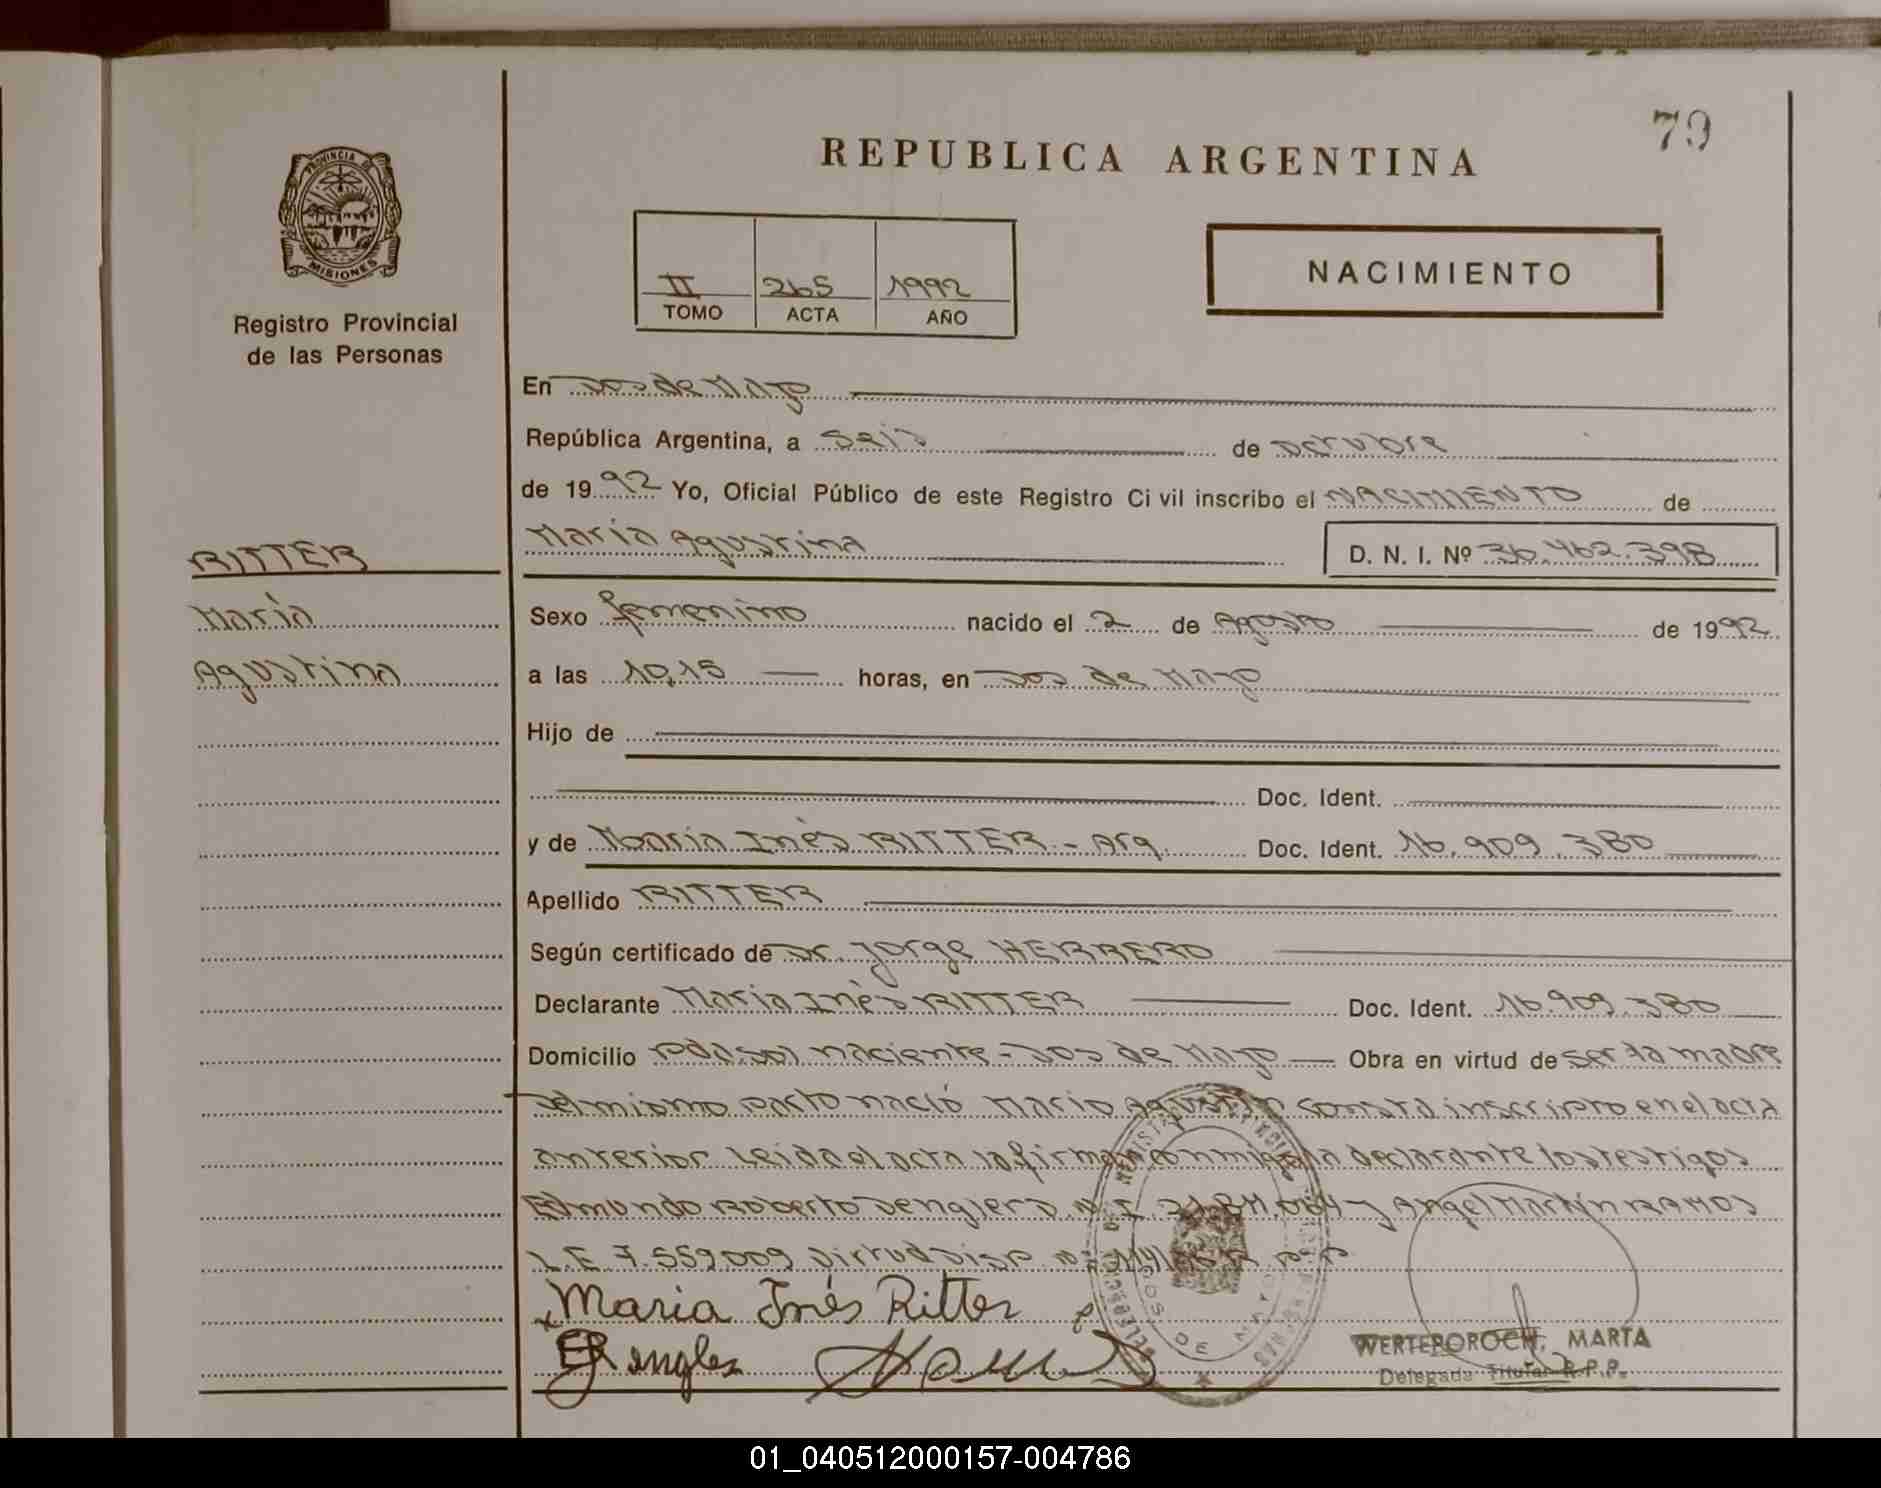 79
REPUBLICA ARGENTINA
PROVINCIA DE
MISIONES
Registro Provincial
de las Personas
II 265 1992
TOMO ACTA AÑO
NACIMIENTO
En Dos de Mayo
República Argentina, a seis de octubre
de 1992 Yo, Oficial Público de este Registro Civil inscribo el NACIMIENTO de
María Agustina D. N. I. Nº 36.462.398
RITTER
María
Agustina
Sexo femenino nacido el 2 de Agosto de 1992
a las 10,15 horas, en Dos de Mayo
Hijo de
Doc. Ident.
y de María Inés RITTER - Arg. Doc. Ident. 16.909.380
Apellido RITTER
Según certificado de Dr. Jorge HERRERO
Declarante María Inés RITTER Doc. Ident. 16.909.380
Domicilio naciente - Dos de Mayo Obra en virtud de ser la madre
Del mismo parto nació Mario Agustín consta inscripto en el acta
anterior Leida el acta la firman conmigo la declarante los testigos
Edmundo Roberto Dengler D.N.I. y Angel Martín RAMOS
L.E 7.559.009 virtud Disp
Maria Inés Ritter
DOS DE MAYO
WERTEPOROCH, MARTA
Delegada Titular R.P.P.
01_040512000157-004786